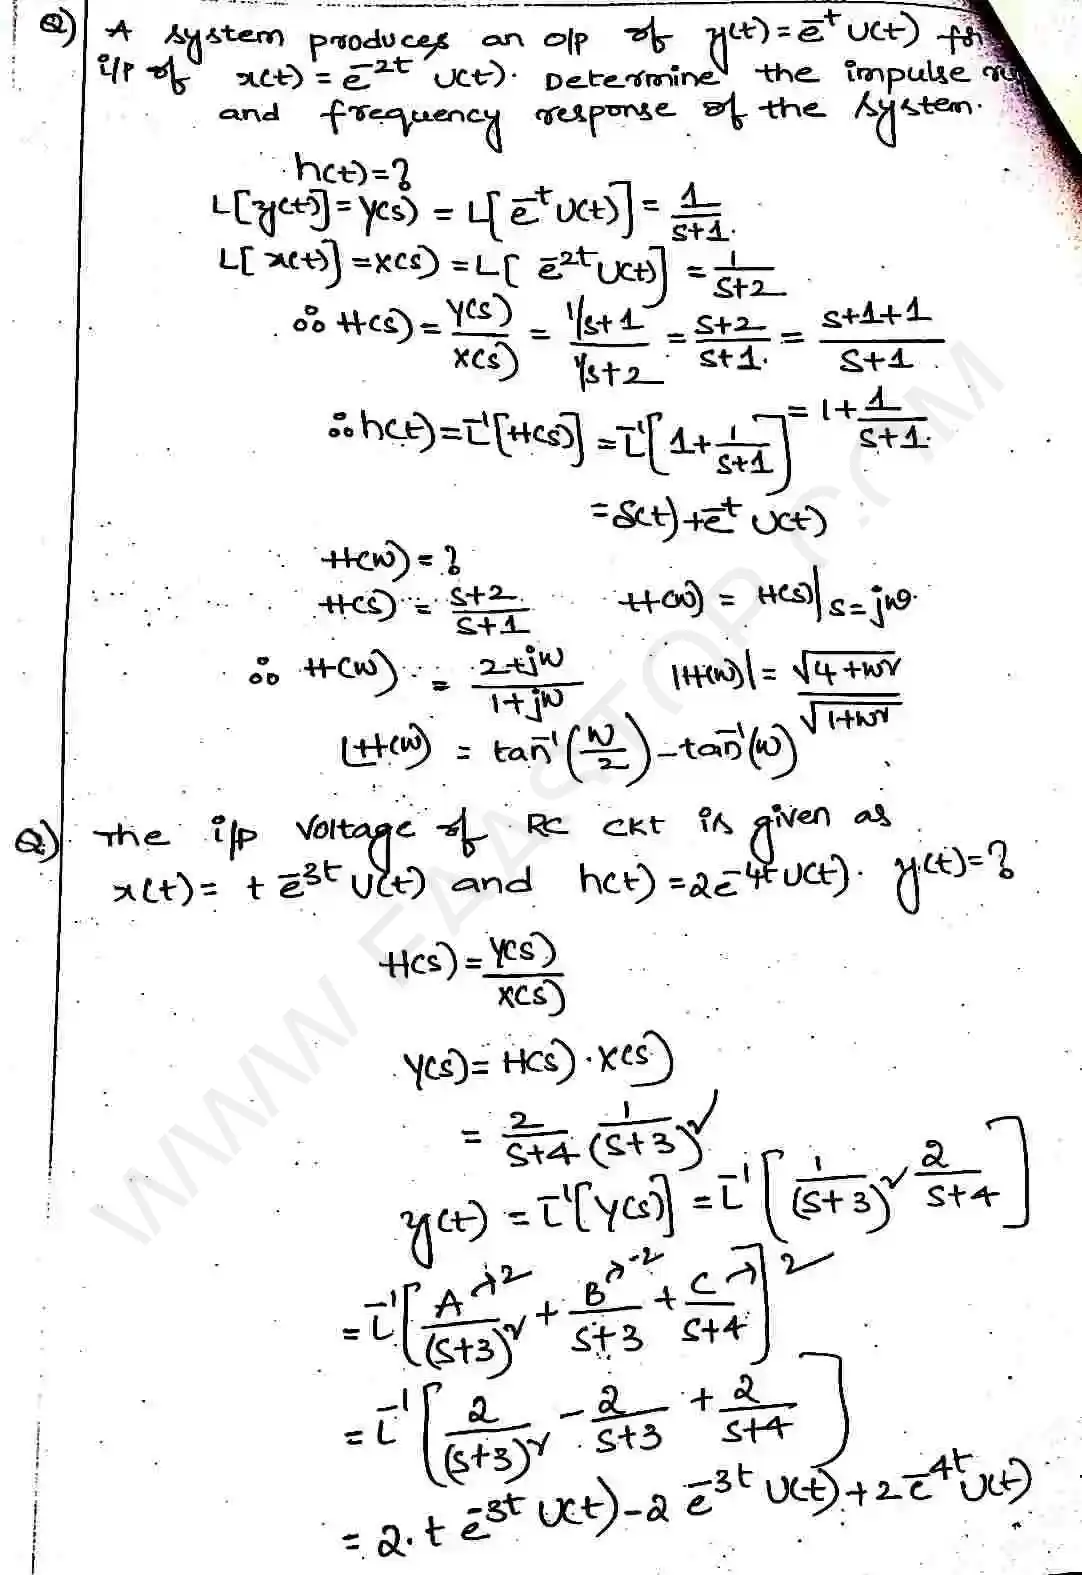 Q) A system produces an o/p of y(t) = e^-t U(t) for
i/p of x(t) = e^-2t U(t). Determine the impulse
and frequency response of the system.
h(t) = ?
L[y(t)] = Y(s) = L[e^-t U(t)] = 1/(s+1).
L[x(t)] = X(s) = L[e^-2t U(t)] = 1/(s+2)
∴ H(s) = Y(s)/X(s) = (1/s+1)/(1/s+2) = (s+2)/(s+1). = (s+1+1)/(s+1).
= 1 + 1/(s+1).
∴ h(t) = L^-1[H(s)] = L^-1[1 + 1/(s+1)]
= δ(t) + e^-t U(t)
H(w) = ?
H(s) = (s+2)/(s+1) H(w) = H(s)|s=jw.
∴ H(w) = (2+jw)/(1+jw) |H(w)| = √(4+w²)/√(1+w²)
∠H(w) = tan^-1(w/2) - tan^-1(w)
Q) The i/p voltage of RC CKT is given as
x(t) = t e^-3t U(t) and h(t) = 2e^-4t U(t). y(t) = ?
H(s) = Y(s)/X(s)
Y(s) = H(s) · X(s)
= 2/(s+4) 1/(s+3)²
y(t) = L^-1[Y(s)] = L^-1[1/(s+3)² 2/(s+4)]
= L^-1[A→2/(s+3)² + B→-2/(s+3) + C→2/(s+4)]
= L^-1[2/(s+3)² - 2/(s+3) + 2/(s+4)]
= 2·t e^-3t U(t) - 2 e^-3t U(t) + 2 e^-4t U(t)
WWW.FAASTOP.COM